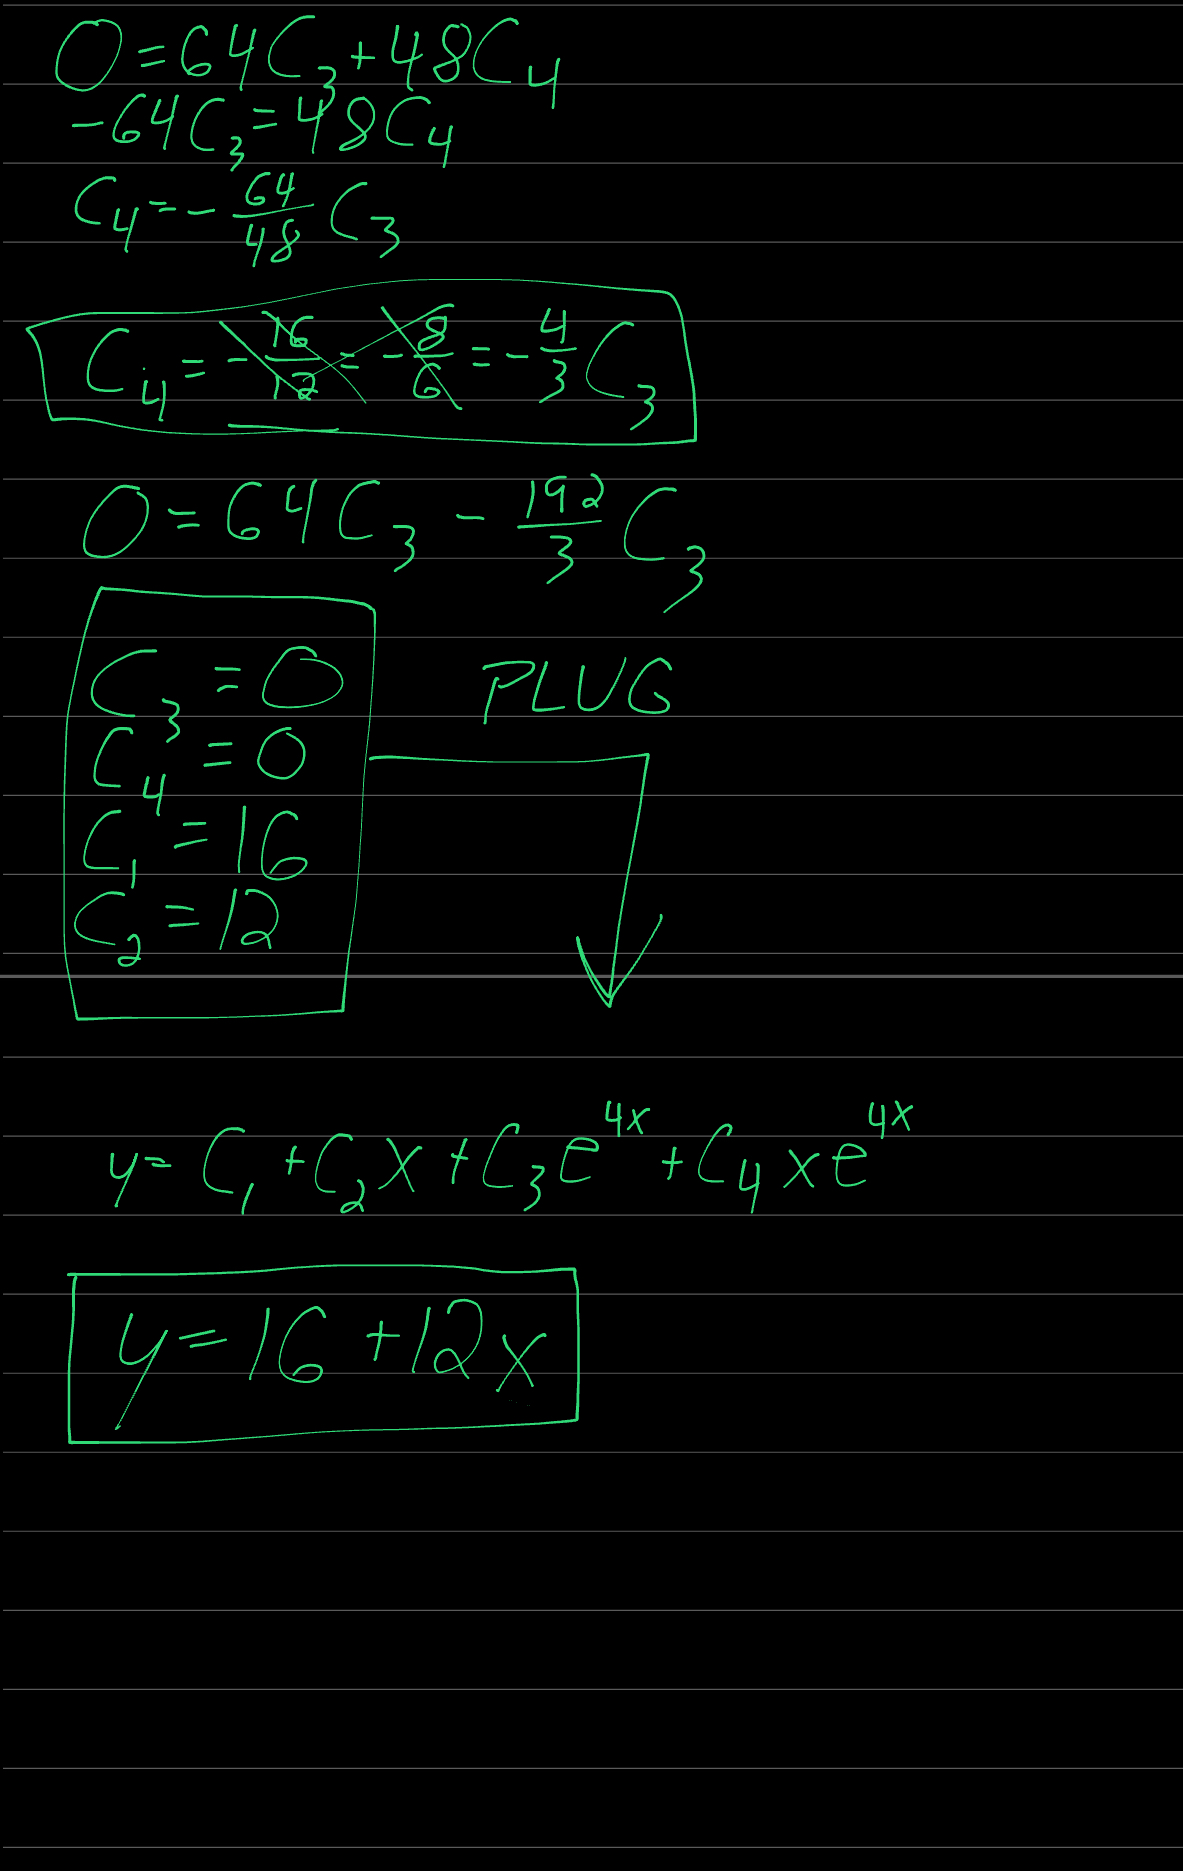 0 = 64C₃ + 48C₄
-64C₃ = 48C₄
C₄ = - 64/48 C₃
C₄ = - 16/12 = - 8/6 = - 4/3 C₃
0 = 64C₃ - 192/3 C₃
C₃ = 0
PLUG
C₄ = 0
C₁ = 16
C₂ = 12
y = C₁ + C₂x + C₃e⁴ˣ + C₄xe⁴ˣ
y = 16 + 12x